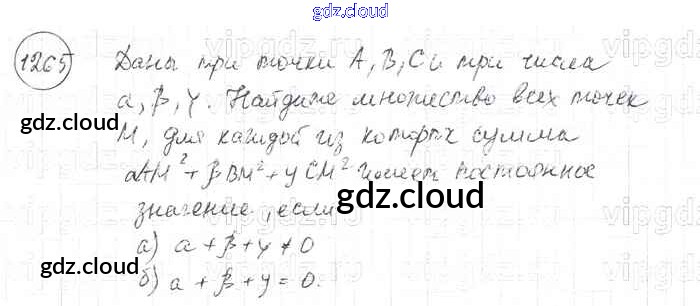 gdz.cloud
1265 Даны три точки A, B, C и три числа
α, β, γ. Найдите множество всех точек
gdz.cloud
M, для каждой из которых сумма
αAM² + βBM² + γCM² имеет постоянное
значение, если
gdz.cloud
а) α + β + γ ≠ 0
gdz.cloud
б) α + β + γ = 0.